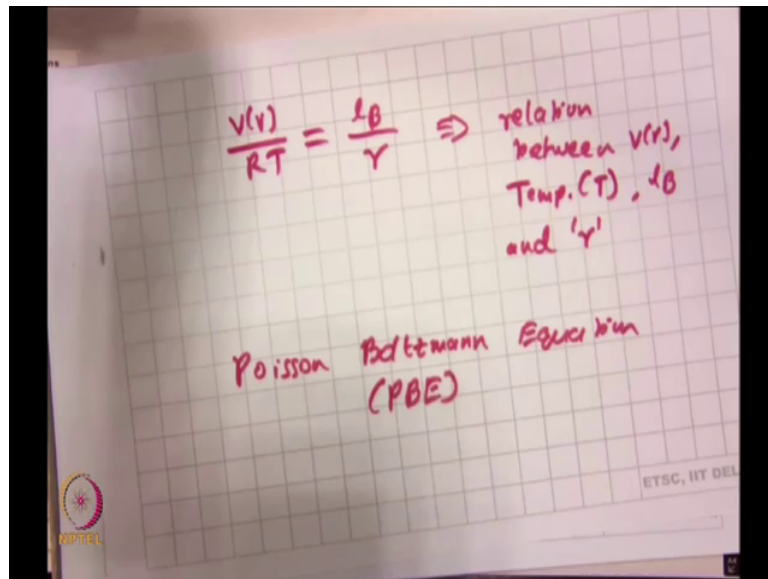 ns
V(r)/RT = lB/r ⇒ relation
between V(r),
Temp.(T), lB
and 'r'
Poisson Boltzmann Equation
(PBE)
ETSC, IIT DEL
NPTEL